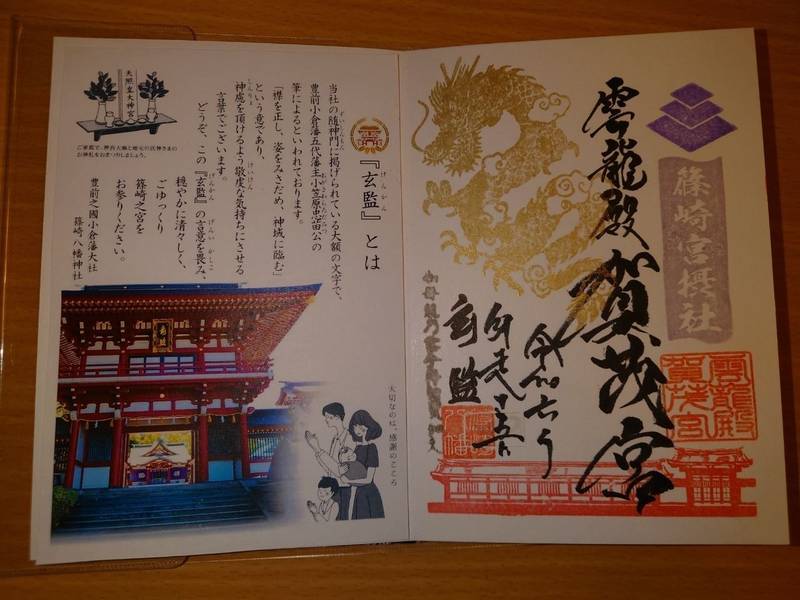 篠崎宮摂社
雲龍殿
賀茂宮
雲龍殿
賀茂宮
玄監
『玄監』とは
当社の随神門に掲げられている大額の文字で、
豊前小倉藩五代藩主小笠原忠苗公の
筆によるといわれております。
「襟を正し、姿をみさだめ、神域に臨む」
という意であり、
神慮を頂けるよう敬虔な気持ちにさせる
言葉でございます。
どうぞ、この『玄監』の言意を畏み、
穏やかに清々しく、
ごゆっくり
篠崎之宮を
お参りください。
豊前之國小倉藩大社
篠崎八幡神社
天照皇大神宮
玄監
大切なのは、感謝のこころ